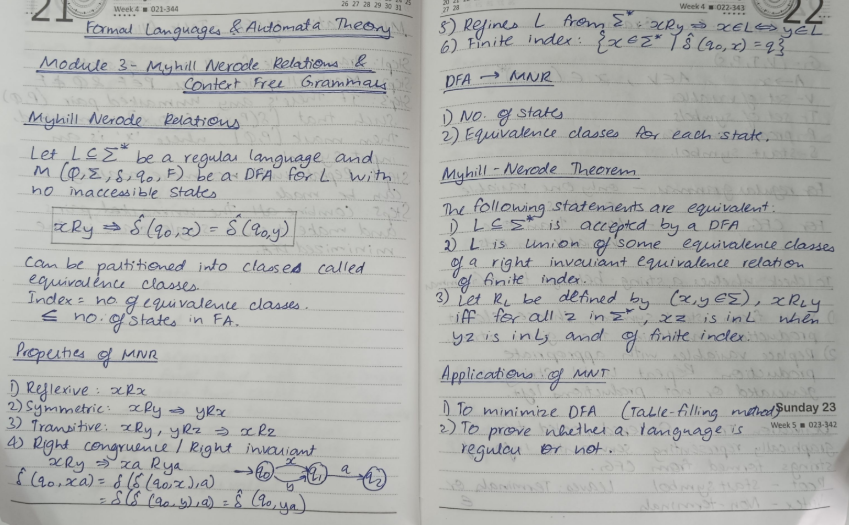 21
Week 4 ■ 021-344
26 27 28 29 30 31
Formal Languages & Automata Theory
Module 3- Myhill Nerode Relations &
Context Free Grammars
Myhill Nerode Relations
Let L ⊆ Σ* be a regular language and
M (Q, Σ, δ, q₀, F) be a DFA for L with
no inaccessible states
xRy ⇒ δ̂(q₀,x) = δ̂(q₀,y)
Can be partitioned into classes called
equivalence classes.
Index = no. of equivalence classes.
≤ no. of states in FA.
Properties of MNR
1) Reflexive: xRx
2) Symmetric: xRy ⇒ yRx
3) Transitive: xRy, yRz ⇒ xRz
4) Right congruence / Right invariant
xRy ⇒ xa Rya
δ̂(q₀,xa) = δ(δ̂(q₀,x),a)
= δ(δ̂(q₀,y),a) = δ̂(q₀,ya)
q₀ x y q₁ a q₂
27 28
Week 4 ■ 022-343
22
5) Refines L from Σ* xRy ⇒ x∈L ⇔ y∈L
6) Finite index: {x∈Σ* | δ̂(q₀,x) = q}
DFA → MNR
1) No. of states
2) Equivalence classes for each state.
Myhill-Nerode Theorem
The following statements are equivalent:
1) L ⊆ Σ* is accepted by a DFA
2) L is union of some equivalence classes
of a right invariant equivalence relation
of finite index.
3) Let R_L be defined by (x,y∈Σ), xR_Ly
iff for all z in Σ*, xz is in L when
yz is in L, and of finite index.
Applications of MNT:
1) To minimize DFA (Table-filling method)
Sunday 23
2) To prove whether a language is
Week 5 ■ 023-342
regular or not.